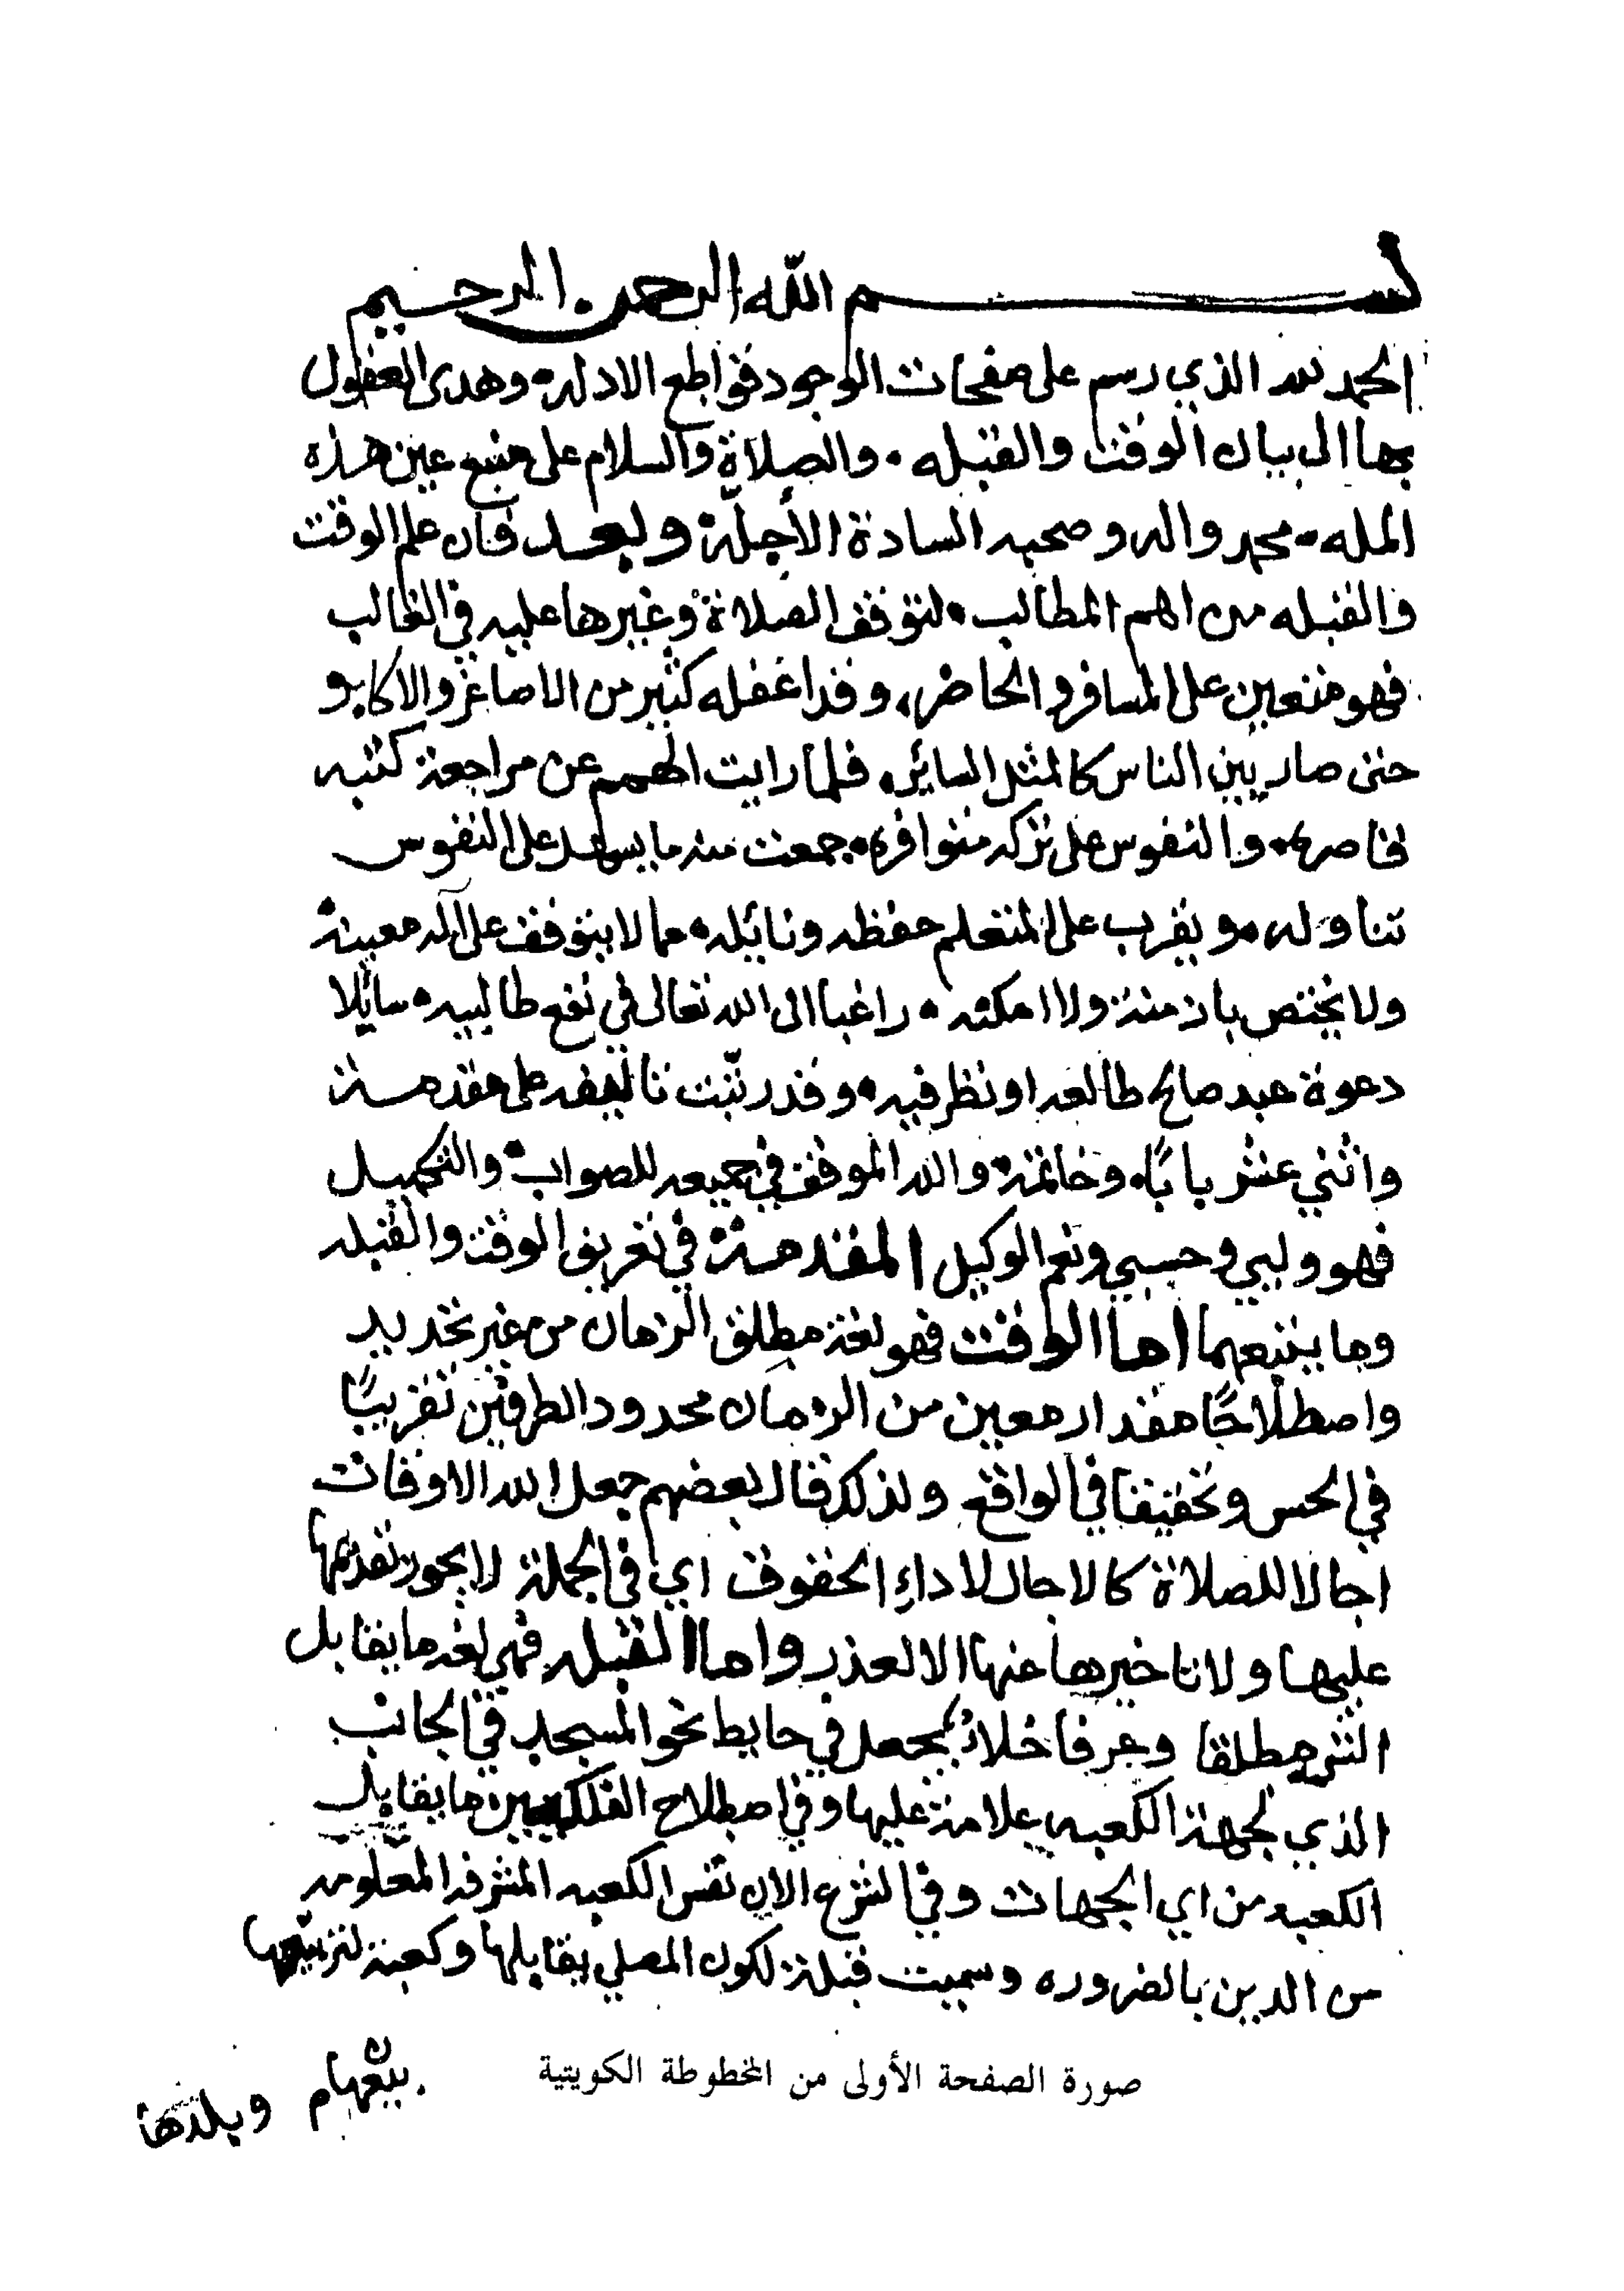 بسم الله الرحمن الرحيم
الحمد لله الذي رسم على صفحات الوجود قواطع الادله وهدى العقول
بها الى بيان الوقت والقبله والصلاة والسلام على منبع عين هذه
المله محمد واله وصحبه السادة الأجلّة وبعد فان علم الوقت
والقبله من اهم المطالب لتوقف الصلاة وغيرها عليه في الغالب
فهو متعين على المسافر والحاضر وقد اغفله كثير من الاصاغر والاكابر
حتى صار بين الناس كالمثل السائر فلما رايت الهمم عن مراجعة كتبه
قاصره والنفوس على تركه متوافره جمعت منه ما يسهل على النفوس
تناوله ويقرب على المتعلم حفظه ونائله مما لا يتوقف على آله معينة
ولا يختص بازمنة ولا امكنه راغبا الى الله تعالى في نفع طالبيه سائلا
دعوة عبد صالح طالعه او نظر فيه وقد رتّبت تاليفه على مقدمة
واثني عشر بابًا وخاتمة والله الموفق في جميعه للصواب والتكميل
فهو وليي وحسبي ونعم الوكيل المقدمة في تعريف الوقت والقبله
وما يتبعهما اما الوقت فهو لغة مطلق الزمان من غير تحديد
واصطلاحًا مقدار معين من الزمان محدود الطرفين تقريبًا
في الحس وتحقيقا في الواقع ولذلك قال بعضهم جعل الله الاوقات
اجالا للصلاة كالاجال لاداء الحقوق اي في الجملة لا يجوز تقديمها
عليها ولا تاخيرها عنها الا لعذر واما القبله فهي لغه ما يقابل
الشي مطلقا وعرفا خلاء يجعل في حايط نحو المسجد في الجانب
الذي لجهة الكعبه علامة عليها وفي اصطلاح الفلكيين ما يقابل
الكعبه من اي الجهات وفي الشرع الان نفس الكعبه المشرفه المعلومه
من الدين بالضروره وسميت قبلة لكون المصلي يقابلها وكعبة لتربيعها
وبلدها
صورة الصفحة الأولى من المخطوطة الكويتية